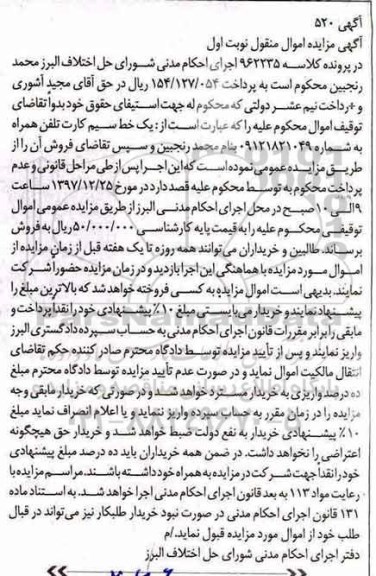 آگهی ۵۲۰
آگهی مزایده اموال منقول نوبت اول
در پرونده کلاسه ۹۶۲۲۳۵ اجرای احکام مدنی شورای حل اختلاف البرز محمد
رنجبین محکوم است به پرداخت ۱۵۴/۱۲۷/۰۵۴ ریال در حق آقای مجید آشوری
و +رداخت نیم عشر دولتی که محکوم له جهت استیفای حقوق خود بدوا تقاضای
توقیف اموال محکوم علیه را که عبارت است از: یک خط سیم کارت تلفن همراه
به شماره ۰۹۱۲۱۸۲۱۰۴۹ بنام محمد رنجبین و سپس تقاضای فروش آن را از
طریق مزایده عمومی نموده است که این اجرا پس از طی مراحل قانونی و عدم
پرداخت محکوم به توسط محکوم علیه قصد دارد در مورخ ۱۳۹۷/۱۲/۲۵ ساعت
۹ الی ۱۰ صبح در محل اجرای احکام مدنی البرز از طریق مزایده عمومی اموال
توقیفی محکوم علیه را به قیمت پایه کارشناسی ۵۰/۰۰۰/۰۰۰ ریال به فروش
برساند. طالبین و خریداران می‌توانند همه روزه تا یک هفته قبل از زمان مزایده از
اموال مورد مزایده با هماهنگی این اجرا بازدید و در زمان مزایده حضورا شرکت
نمایند. بدیهی است اموال مزایده به کسی فروخته خواهد شد که بالاترین مبلغ را
پیشنهاد نمایند و خریدار می‌بایستی مبلغ ۱۰٪ پیشنهادی خود را نقدا پرداخت و
مابقی را برابر مقررات قانون اجرای احکام مدنی به حساب سپرده دادگستری البرز
واریز نمایند و پس از تأیید مزایده توسط دادگاه محترم صادر کننده حکم تقاضای
انتقال مالکیت اموال نماید و در صورت عدم تأیید مزایده توسط دادگاه محترم مبلغ
ده درصد واریزی به خریدار مسترد خواهد شد و در صورتی که خریدار مابقی وجه
مزایده را در زمان مقرر به حساب سپرده واریز ننماید و یا اعلام انصراف نماید مبلغ
۱۰٪ پیشنهادی خریدار به نفع دولت ضبط خواهد شد و خریدار حق هیچگونه
اعتراضی را نخواهد داشت. در ضمن همه خریداران باید ده درصد مبلغ پیشنهادی
خود را نقدا جهت شرکت در مزایده به همراه خود داشته باشند. مراسم مزایده با
رعایت مواد ۱۱۳ به بعد قانون اجرای احکام مدنی اجرا خواهد شد. به استناد ماده
۱۳۱ قانون اجرای احکام مدنی در صورت نبود خریدار طلبکار نیز می‌تواند در قبال
طلب خود از اموال مورد مزایده قبول نماید./م
دفتر اجرای احکام مدنی شورای حل اختلاف البرز